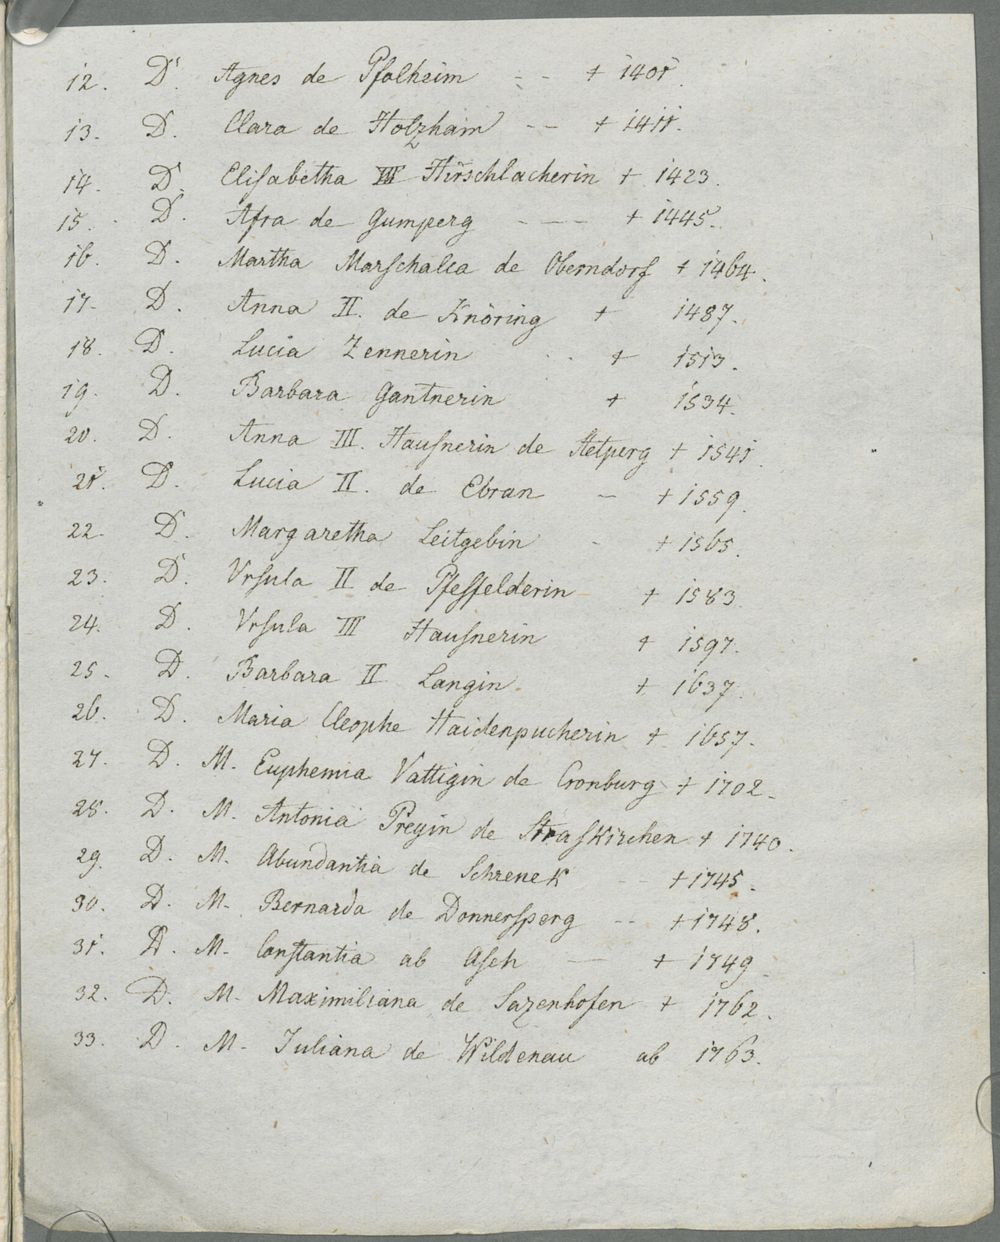 12. D. Agnes de Pfalheim - - + 1401.
13. D. Clara de Holzhaim - - + 1411.
14. D. Elisabetha III Hirschlacherin + 1423.
15. D. Afra de Gumperg - - - + 1445.
16. D. Martha Marschalca de Oberndorf + 1464.
17. D. Anna II. de Knöring + 1487.
18. D. Lucia Zennerin - - + 1513.
19. D. Barbara Gantnerin + 1534.
20. D. Anna III. Hausnerin de Stetperg + 1541.
21. D. Lucia II. de Ebran - + 1559.
22. D. Margaretha Leitgebin - + 1565.
23. D. Vrsula II de Pfeffelderin + 1583.
24. D. Vrsula III Hausnerin + 1597.
25. D. Barbara II Langin + 1637.
26. D. Maria Cleophe Haidenpucherin + 1657.
27. D. M. Euphemia Vattigin de Cronburg + 1702.
28. D. M. Antonia Preyin de Straskirchen + 1740.
29 D. M. Abundantia de Schrenek - - + 1745.
30. D. M. Bernarda de Donnersperg - - + 1748.
31. D. M. Constantia ab Asch - + 1749.
32. D. M. Maximiliana de Sazenhofen + 1762.
33. D. M. Juliana de Wildenau ab 1763.